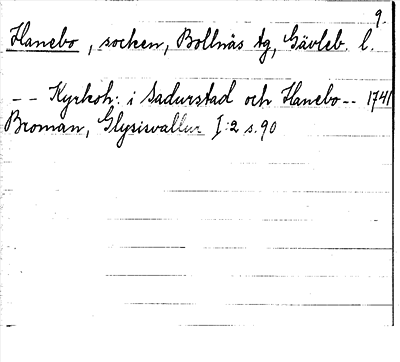 9.
Hanebo, socken, Bollnäs tg, Gävleb. l.
-- Kyrkoh: i Sadurstad och Hanebo -- 1741
Broman, Glysisvallur I:2 s.90